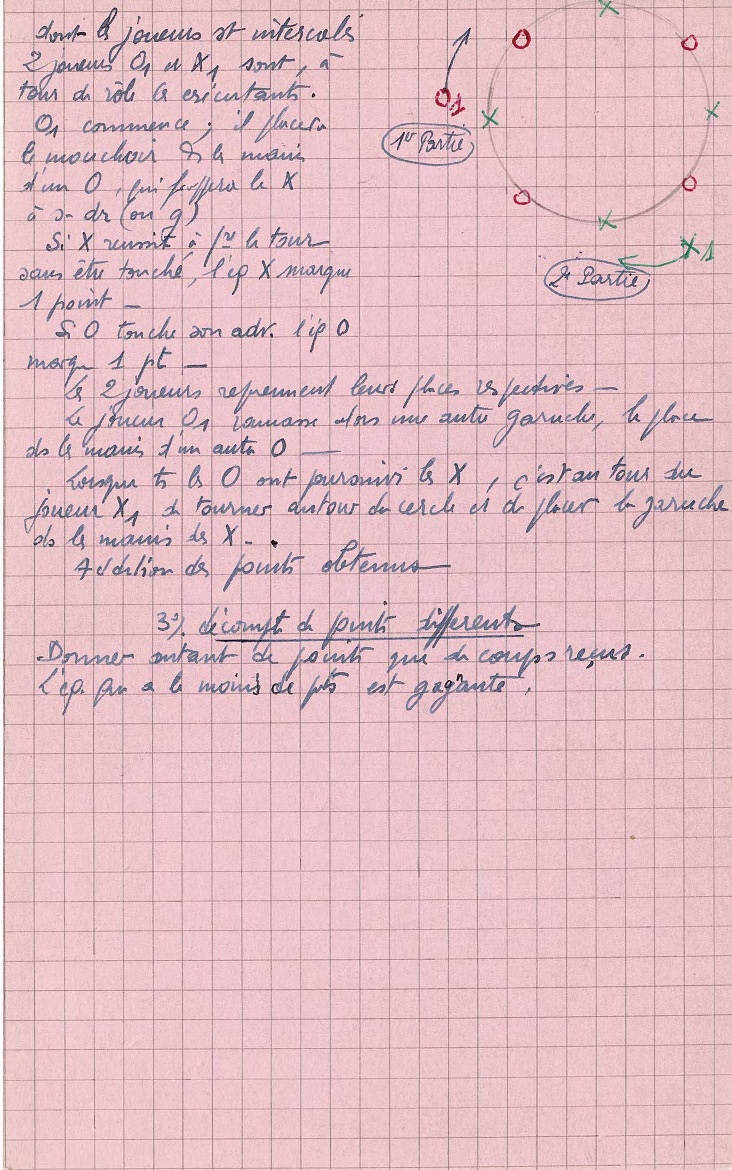 dont les joueurs st intercalés
2 joueurs O1 et X1 sont, à
tour de rôle les exécutants.
O1 commence ; il placera
le mouchoir ds la main
d'un O, qui frappera le X
à sa dr (ou g)
Si X réussit à fre le tour
sans être touché, l'éq X marque
1 point _
Si O touche son adv. l'éq O
marq 1 pt _
Les 2 joueurs reprennent leurs places respectives _
Le joueur O1 ramasse alors une autre garuche, la place
ds la main d'un autre O _
Lorsque ts les O ont poursuivi les X, c'est au tour du
joueur X1 de tourner autour du cercle et de placer la garuche
ds les mains des X _.
Addition des points obtenus _
3°/ décompte de points différents
Donner autant de points que de coups reçus.
L'éq. qui a le moins de pts est gagnante.
X
O
O
O1
X
X
1re Partie
O
O
X
X1
2e Partie